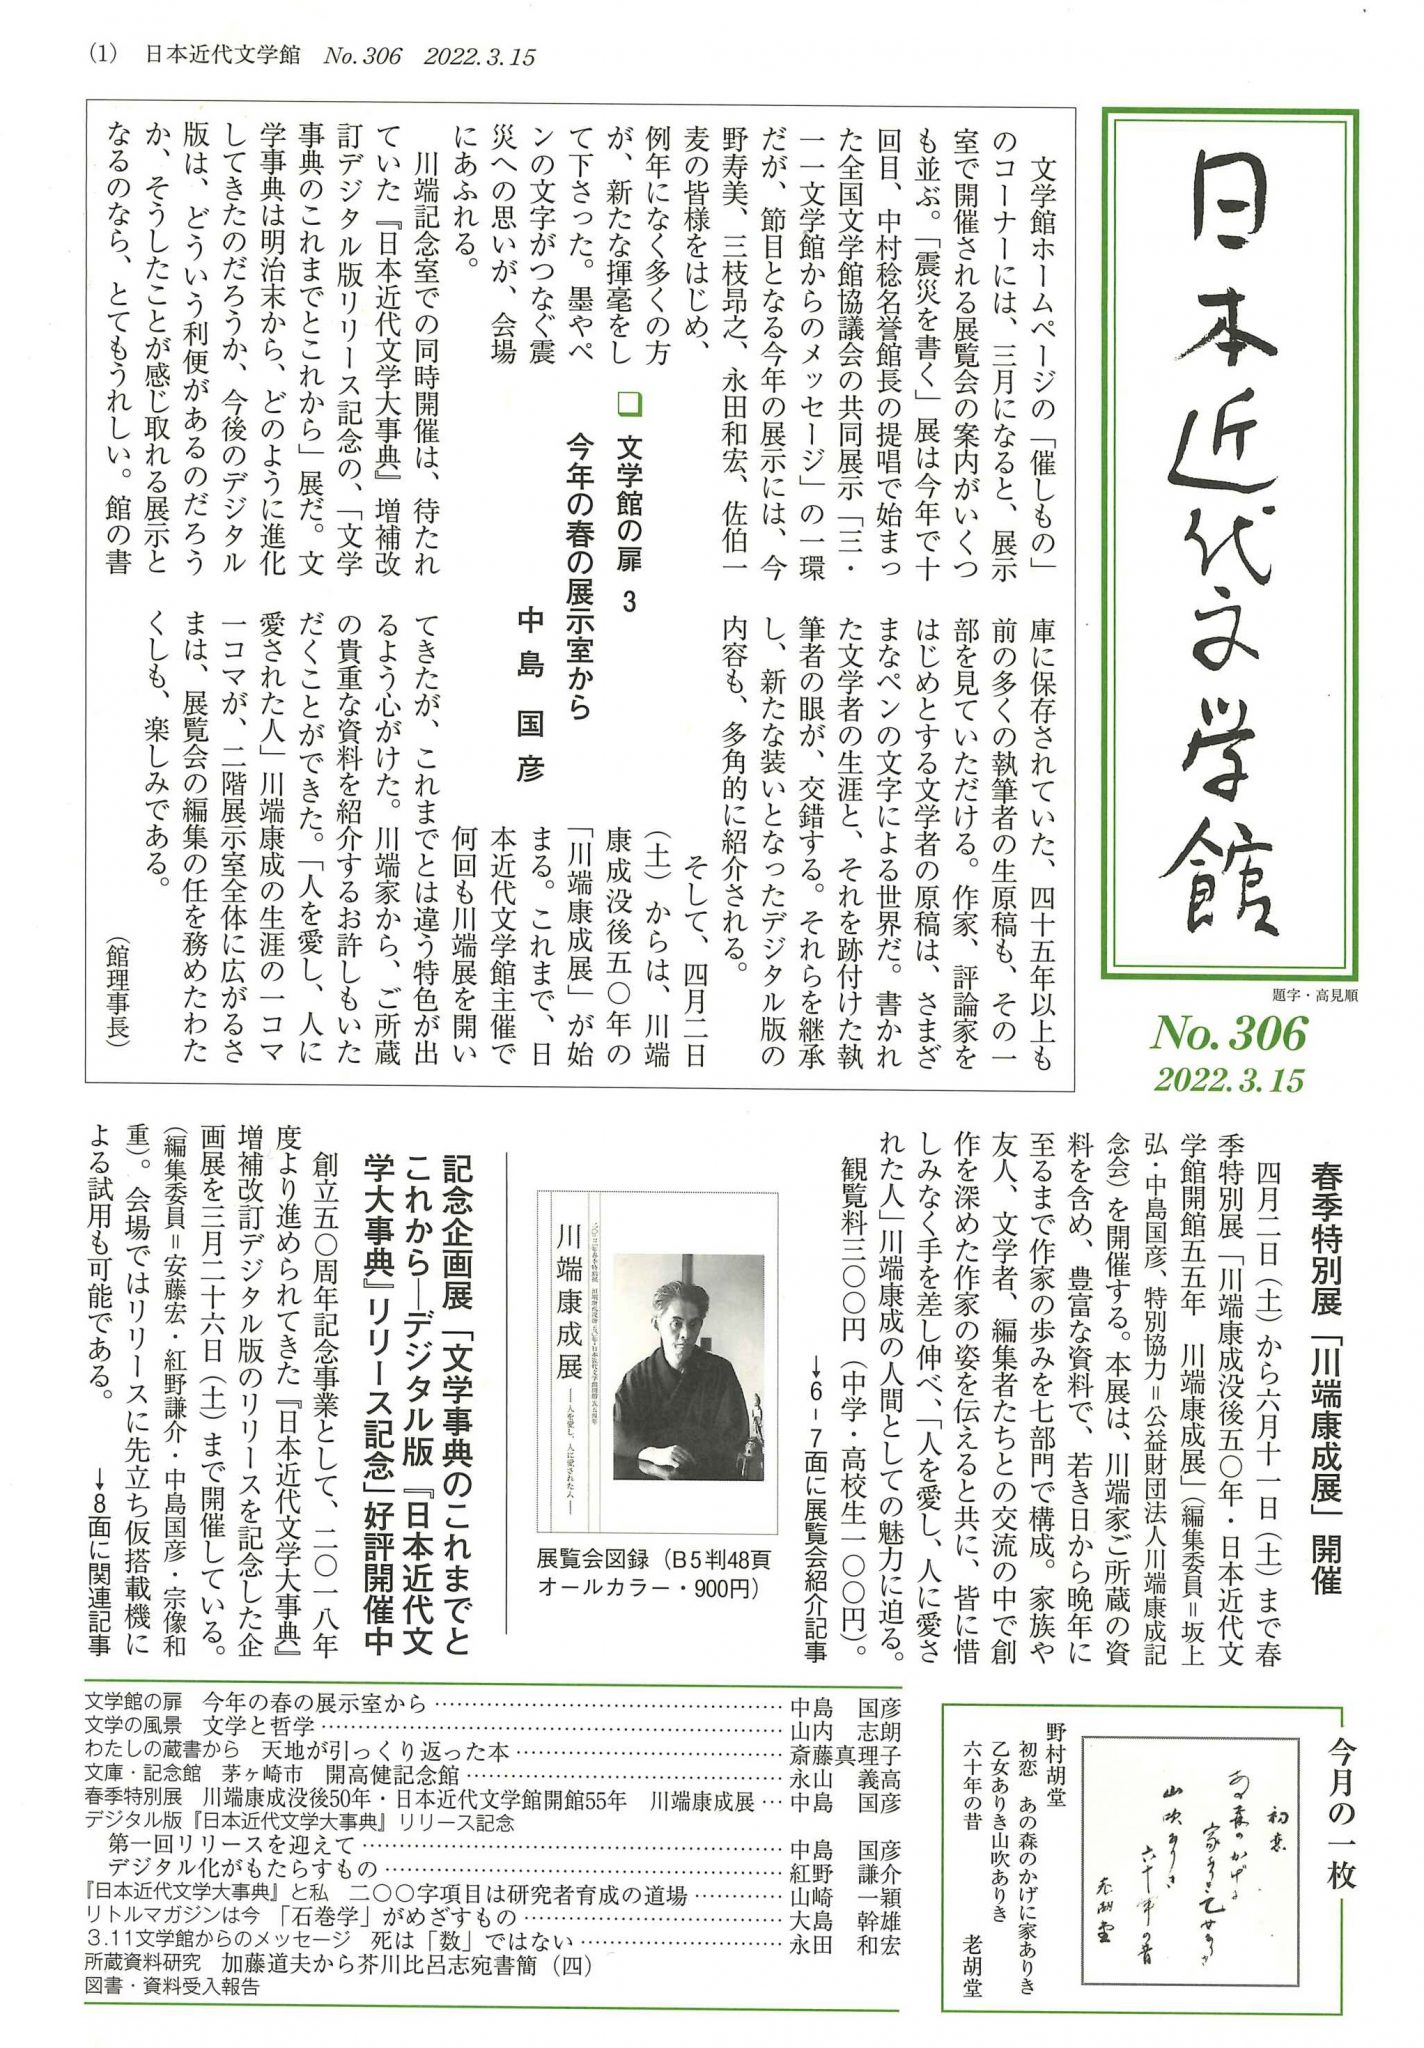 (1) 日本近代文学館 No.306 2022.3.15
日本近代文学館
題字・高見順
No.306
2022.3.15
文学館ホームページの「催しもの」
のコーナーには、三月になると、展示
室で開催される展覧会の案内がいくつ
も並ぶ。「震災を書く」展は今年で十
回目、中村稔名誉館長の提唱で始まっ
た全国文学館協議会の共同展示「三・
一一文学館からのメッセージ」の一環
だが、節目となる今年の展示には、今
野寿美、三枝昻之、永田和宏、佐伯一
麦の皆様をはじめ、
例年になく多くの方
が、新たな揮毫をし
て下さった。墨やペ
ンの文字がつなぐ震
災への思いが、会場
にあふれる。
川端記念室での同時開催は、待たれ
ていた『日本近代文学大事典』増補改
訂デジタル版リリース記念の、「文学
事典のこれまでとこれから」展だ。文
学事典は明治末から、どのように進化
してきたのだろうか、今後のデジタル
版は、どういう利便があるのだろう
か、そうしたことが感じ取れる展示と
なるのなら、とてもうれしい。館の書
❏ 文学館の扉 3
今年の春の展示室から
中島国彦
庫に保存されていた、四十五年以上も
前の多くの執筆者の生原稿も、その一
部を見ていただける。作家、評論家を
はじめとする文学者の原稿は、さまざ
まなペンの文字による世界だ。書かれ
た文学者の生涯と、それを跡付けた執
筆者の眼が、交錯する。それらを継承
し、新たな装いとなったデジタル版の
内容も、多角的に紹介される。
そして、四月二日
(土)からは、川端
康成没後五〇年の
「川端康成展」が始
まる。これまで、日
本近代文学館主催で
何回も川端展を開い
てきたが、これまでとは違う特色が出
るよう心がけた。川端家から、ご所蔵
の貴重な資料を紹介するお許しもいた
だくことができた。「人を愛し、人に
愛された人」川端康成の生涯の一コマ
一コマが、二階展示室全体に広がるさ
まは、展覧会の編集の任を務めたわた
くしも、楽しみである。
(館理事長)
春季特別展「川端康成展」開催
四月二日(土)から六月十一日(土)まで春
季特別展「川端康成没後五〇年・日本近代文
学館開館五五年　川端康成展」(編集委員=坂上
弘・中島国彦、特別協力=公益財団法人川端康成記
念会)を開催する。本展は、川端家ご所蔵の資
料を含め、豊富な資料で、若き日から晩年に
至るまで作家の歩みを七部門で構成。家族や
友人、文学者、編集者たちとの交流の中で創
作を深めた作家の姿を伝えると共に、皆に惜
しみなく手を差し伸べ、「人を愛し、人に愛さ
れた人」川端康成の人間としての魅力に迫る。
観覧料三〇〇円(中学・高校生一〇〇円)。
→6-7面に展覧会紹介記事
二〇二二年春季特別展　川端康成没後五〇年・日本近代文学館開館五五年
川端康成展 ―人を愛し、人に愛された人―
展覧会図録(B5判48頁
オールカラー・900円)
記念企画展「文学事典のこれまでと
これから―デジタル版『日本近代文
学大事典』リリース記念」好評開催中
創立五〇周年記念事業として、二〇一八年
度より進められてきた『日本近代文学大事典』
増補改訂デジタル版のリリースを記念した企
画展を三月二十六日(土)まで開催している。
(編集委員=安藤宏・紅野謙介・中島国彦・宗像和
重)。会場ではリリースに先立ち仮搭載機に
よる試用も可能である。
→8面に関連記事
今月の一枚
初恋
あの森のかげに
家ありき乙女ありき
山吹ありき
六十年の昔
老胡堂
野村胡堂
初恋　あの森のかげに家ありき
乙女ありき山吹ありき
六十年の昔　老胡堂
文学館の扉　今年の春の展示室から……中島　国彦
文学の風景　文学と哲学……山内　志朗
わたしの蔵書から　天地が引っくり返った本……斎藤真理子
文庫・記念館　茅ヶ崎市　開高健記念館……永山　義高
春季特別展　川端康成没後50年・日本近代文学館開館55年　川端康成展…中島　国彦
デジタル版『日本近代文学大事典』リリース記念
第一回リリースを迎えて……中島　国彦
デジタル化がもたらすもの……紅野　謙介
『日本近代文学大事典』と私　二〇〇字項目は研究者育成の道場……山崎　一穎
リトルマガジンは今　「石巻学」がめざすもの……大島　幹雄
3.11文学館からのメッセージ　死は「数」ではない……永田　和宏
所蔵資料研究　加藤道夫から芥川比呂志宛書簡(四)
図書・資料受入報告